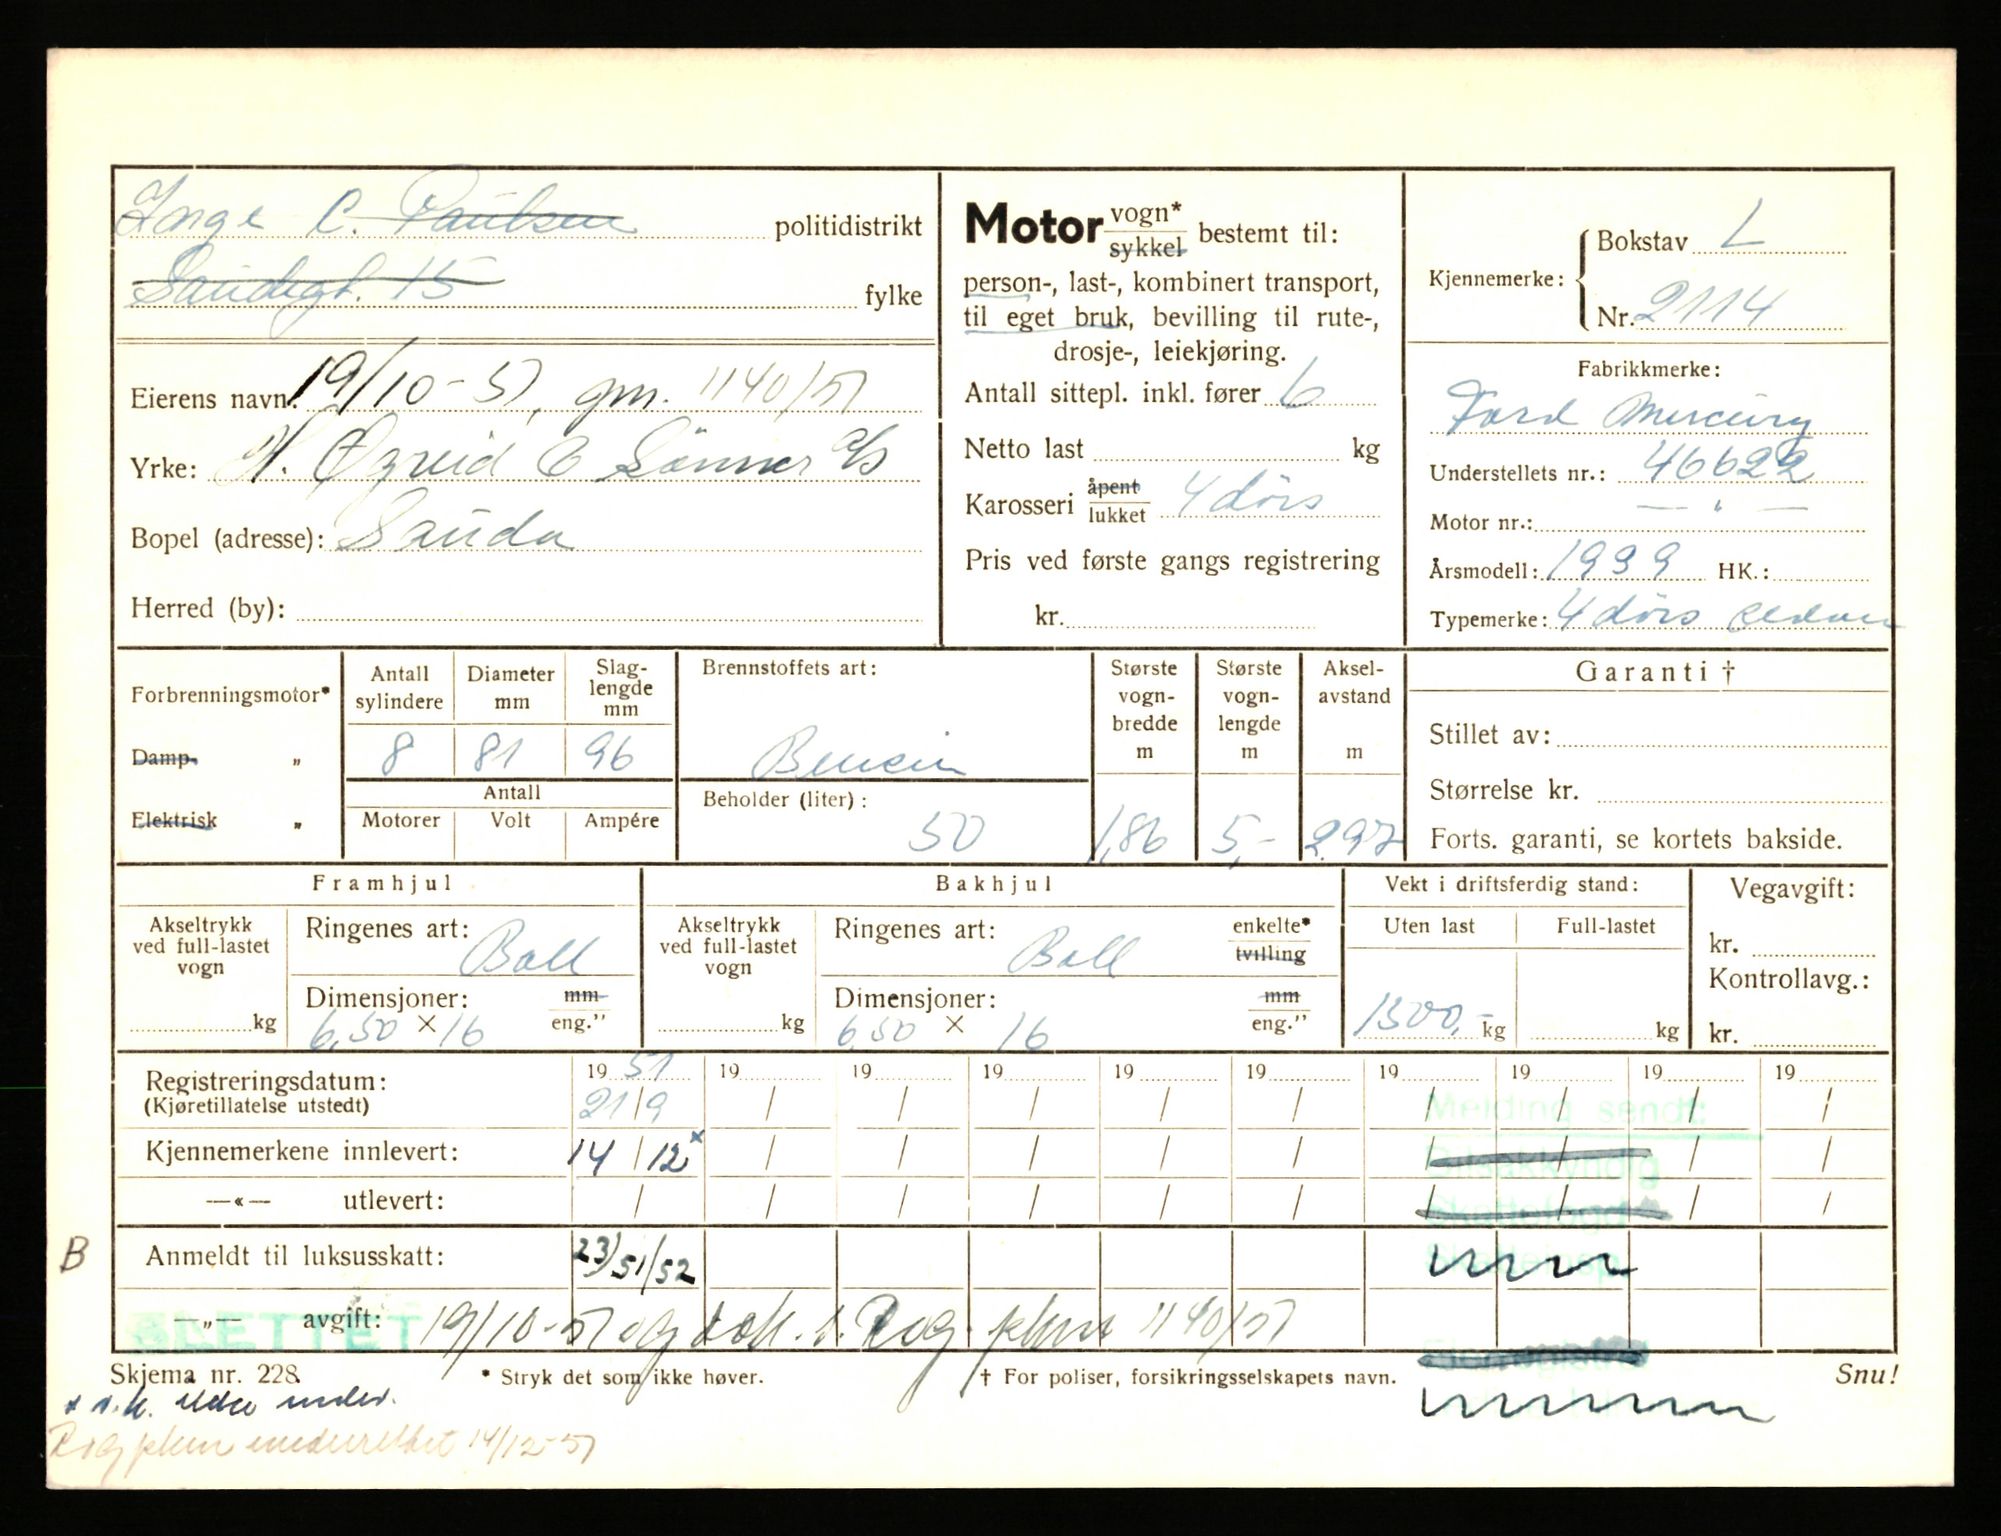 Inge C. Paulsen politidistrikt
Sandegt. 15 fylke
Eierens navn: 19/10-51, gm. 1140/51
Yrke: H. & Sönner A/S
Bopel (adresse): Sauda
Herred (by):
Motor vogn* sykkel bestemt til:
person-, last-, kombinert transport,
til eget bruk, bevilling til rute-,
drosje-, leiekjøring.
Antall sittepl. inkl. fører 6
Netto last kg
Karosseri åpent lukket 4 dörs
Pris ved første gangs registrering
kr.
Kjennemerke: Bokstav L
Nr. 2114
Fabrikkmerke:
Ford Mercury
Understellets nr.: 46622
Motor nr.: — " —
Årsmodell: 1939 HK.:
Typemerke: 4 dörs sedan
Forbrenningsmotor*
Damp- „
Elektrisk „
Antall sylindere
8
Diameter mm
81
Slag-lengde mm
96
Antall
Motorer Volt Ampére
Brennstoffets art:
Bensin
Beholder (liter):
50
Største vogn-bredde m
1,86
Største vogn-lengde m
5,-
Aksel-avstand m
2.97
Garanti †
Stillet av:
Størrelse kr.
Forts. garanti, se kortets bakside.
Framhjul
Akseltrykk ved full-lastet vogn
kg
Ringenes art: Ball
Dimensjoner: mm eng."
6,50 × 16
Bakhjul
Akseltrykk ved full-lastet vogn
kg
Ringenes art: Ball enkelte* tvilling
Dimensjoner: mm eng."
6,50 × 16
Vekt i driftsferdig stand:
Uten last Full-lastet
1300,- kg kg
Vegavgift:
kr.
Kontrollavg.:
kr.
19 51 19 19 19 19 19 19 19 19 19
Registreringsdatum: 21/9 / / / / / / / / /
(Kjøretillatelse utstedt)
Melding sendt:
Kjennemerkene innlevert: 14/12 x / / / / / / / / /
Bilsakkyndig
—«— utlevert: / / / / / / / / / /
Skattefogd
B Anmeldt til luksusskatt: 23/51/52
—„— avgift: 19/10-51 og dok. t. Rog. phm 1140/51
SLETTET
Skjema nr. 228.
* Stryk det som ikke høver.
† For poliser, forsikringsselskapets navn.
Snu!
x
Rog phm underrettet 14/12-51